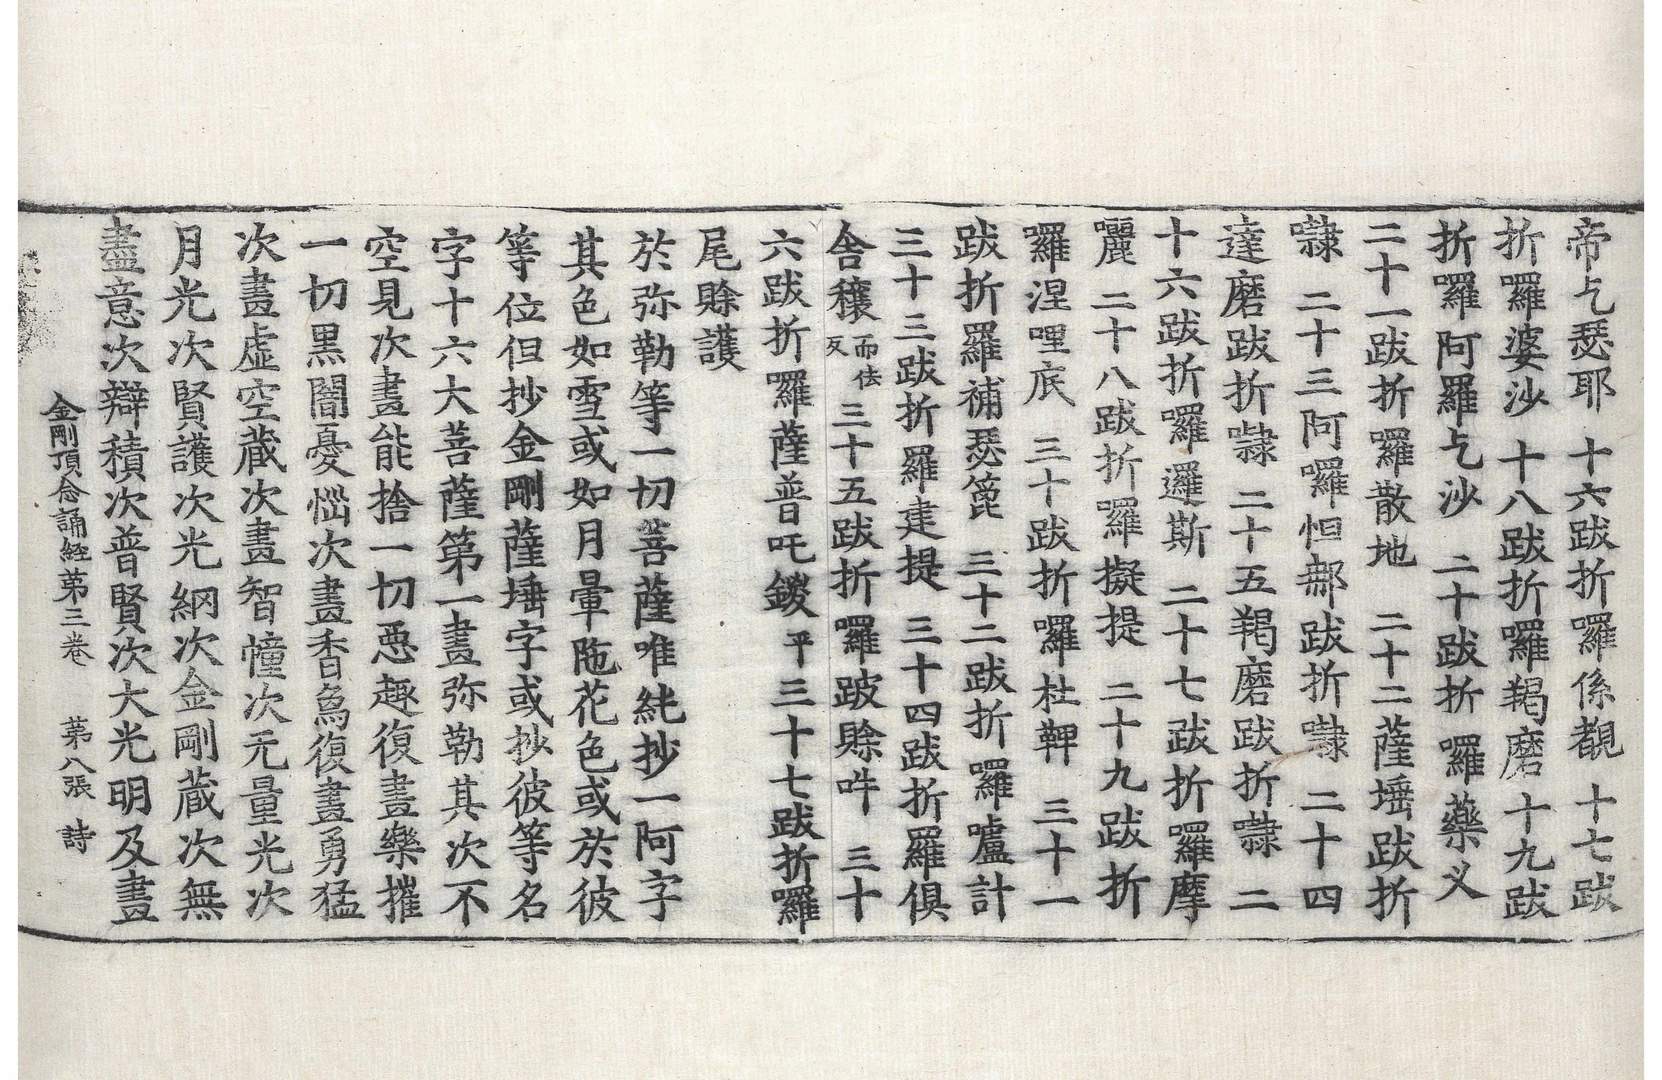 帝乞瑟耶 十六跋折囉係覩 十七跋
折囉婆沙 十八跋折囉羯磨 十九跋
折囉阿羅乞沙 二十跋折囉藥义
二十一跋折囉散地 二十二薩埵跋折
㘑 二十三阿囉怛那跋折㘑 二十四
達磨跋折㘑 二十五羯磨跋折㘑 二
十六跋折囉邏斯 二十七跋折囉摩
囇 二十八跋折囉擬提 二十九跋折
囉涅哩底 三十跋折囉杜鞞 三十一
跋折羅補瑟篦 三十二跋折囉嚧計
三十三跋折羅建提 三十四跋折羅俱
舍穰而佉反 三十五跋折囉跛賒吽 三十
六跋折囉薩普吒鑁平 三十七跋折囉
尾賒護
於弥勒等一切菩薩唯純抄一阿字
其色如雪或如月暈陁花色或於彼
等位但抄金剛薩埵字或抄彼等名
字十六大菩薩第一畫弥勒其次不
空見次畫能捨一切惡趣復畫樂摧
一切黑闇憂惱次畫香爲復畫勇猛
次畫虛空藏次畫智幢次无量光次
月光次賢護次光網次金剛藏次無
盡意次辯積次普賢次大光明及畫
金剛頂念誦經第三卷 第八張 詩